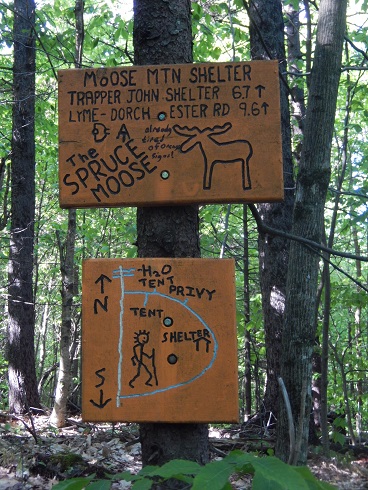 MOOSE MTN SHELTER
TRAPPER JOHN SHELTER 6.7↑
LYME-DORCH ESTER RD 9.6↑
The
SPRUCE
MOOSE
already
tired
of
signs!
H2O
TENT
PRIVY
N
TENT
SHELTER
S